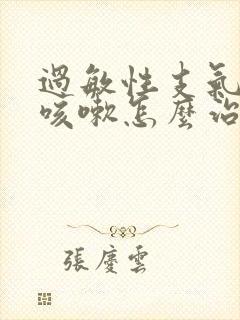 過敏性支氣
咳嗽怎麼治
張慶雲